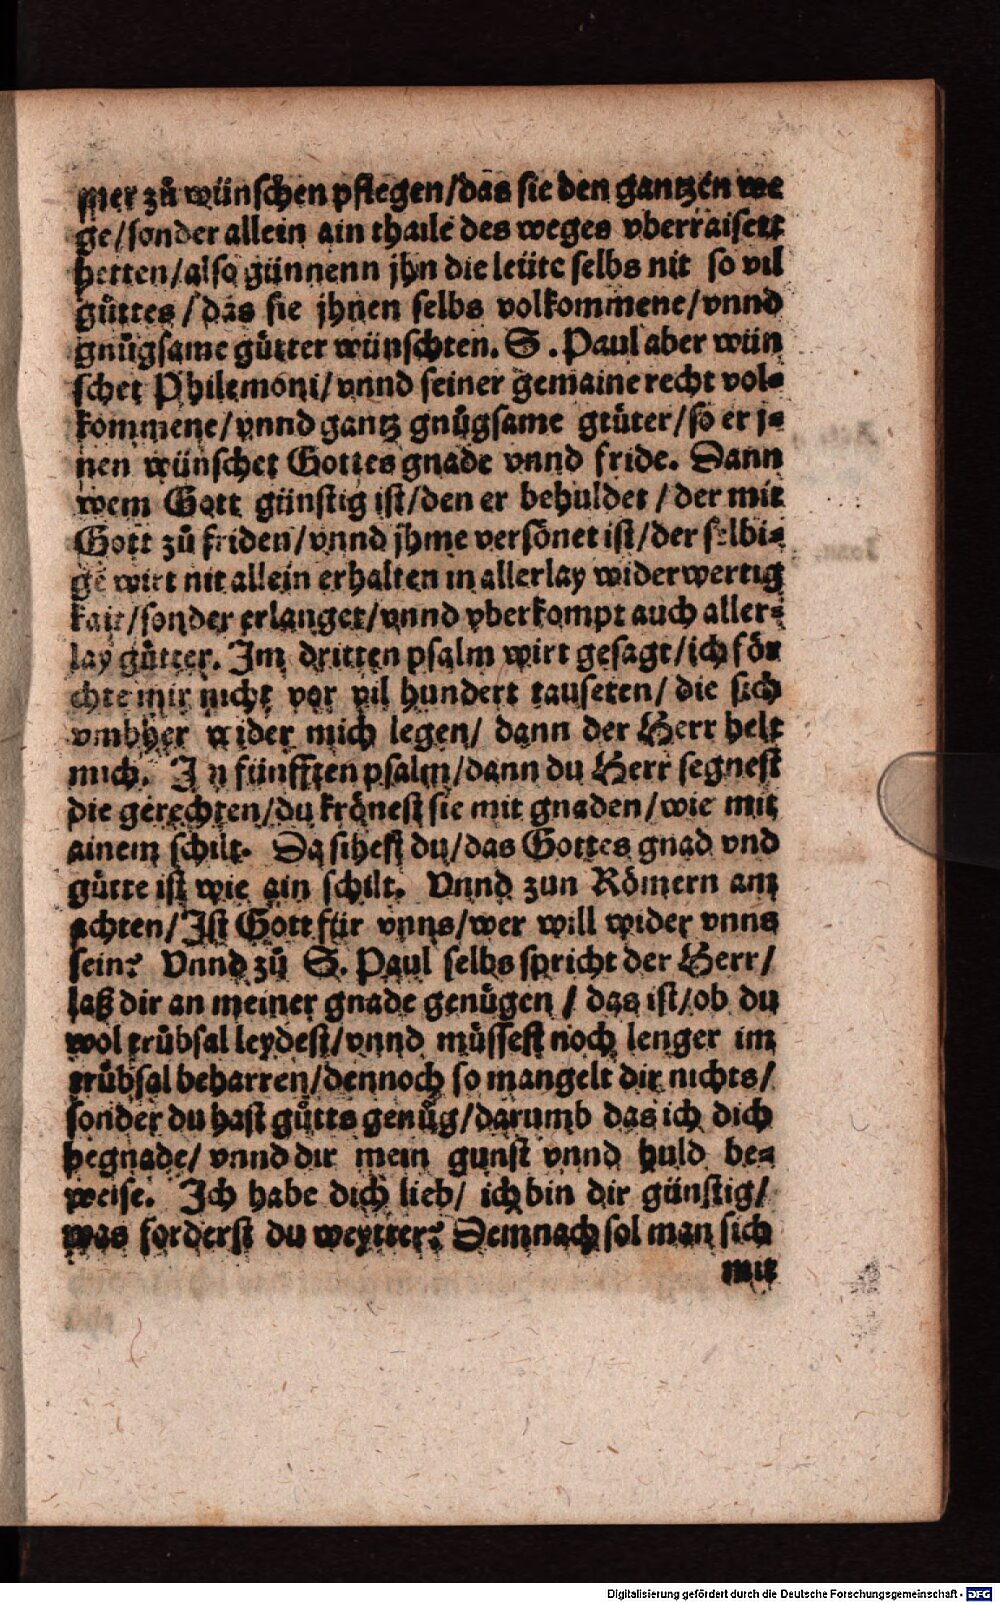 mer zů wünschen pflegen/das sie den gantzen we
ge/sonder allein ain thaile des weges vberraisett
hetten/also günnenn jhn die leüte selbs nit so vil
gůttes/das sie jhnen selbs volkommene/vnnd
gnůgsame gůtter wünschten. S. Paul aber wün
schet Philemoni/vnnd seiner gemaine recht vol⸗
kommene/vnnd gantz gnůgsame gtüter/so er j⸗
nen wünschet Gottes gnade vnnd fride. Dann
wem Gott günstig ist/den er behuldet/der mit
Gott zů friden/vnnd jhme versönet ist/der selbi⸗
ge wirt nit allein erhalten in allerlay widerwertig
kait/sonder erlanget/vnnd vberkompt auch aller⸗
lay gůtter. Im dritten psalm wirt gesagt/ichför
chte mir nicht vor vil hundert tauseten/die sich
vmbher wider mich legen/dann der Herr helt
mich. In fünfften psalm/dann du Herr segnest
die gerechten/du krönest sie mit gnaden/wie mit
ainem schilt. Da sihest du/das Gottes gnad vnd
gůtte ist wie ain schilt. Vnnd zun Römern am
achten/Ist Gott für vnns/wer will wider vnns
sein? Vnnd zů S. Paul selbs spricht der Herr/
laß dir an meiner gnade genůgen/das ist/ob du
wol trůbsal leydest/vnnd můssest noch lenger im
trůbsal beharren/dennoch so mangelt dir nichts/
sonder du hast gůtts genůg/darumb das ich dich
begnade/vnnd dir mein gunst vnnd huld be⸗
weise. Ich habe dich lieb/ich bin dir günstig/
was forderst du weytter? Demnach sol man sich
mit
Digitalisierung gefördert durch die Deutsche Forschungsgemeinschaft - DFG